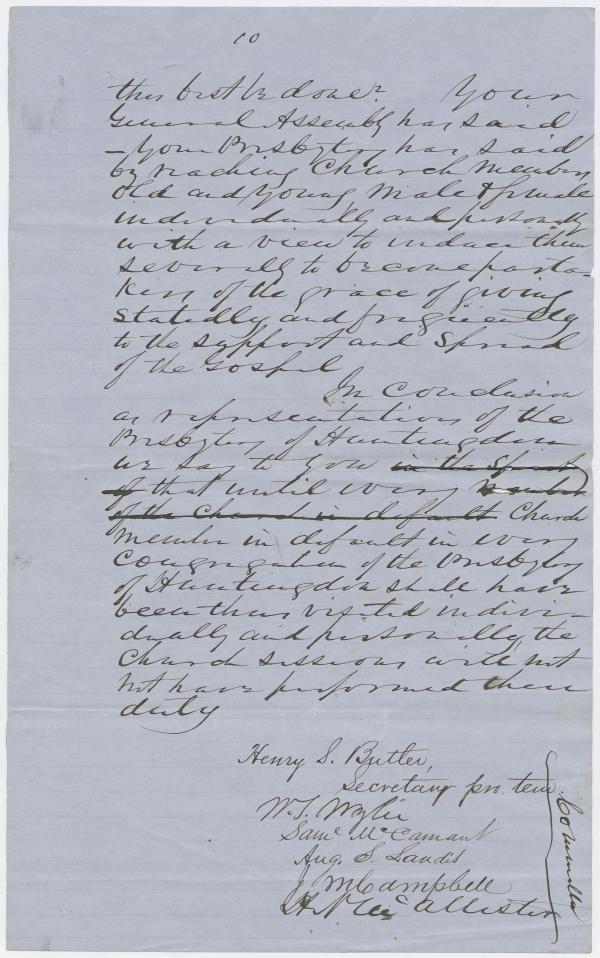 10
this best be done? Your
General Assembly has said
- Your Presbytery has said
by reaching Church members
old and young male & female
individually and personally
with a view to induce them
severally to become parta-
kers of the grace of giving
statedly and frequently
to the support and spread
of the Gospel
In conclusion
as representatives of the
Presbytery of Huntingdon
we say to you in the Spirit
of that until every member
of the Church in default Church
member in default in every
congregation of the Presbytery
of Huntingdon shall have
been thus visited indivi-
dually and personally, the
Church sessions will not
not have performed their
duly
Henry S. Butler,
Secretary pro. tem.
W. T. Wylie
Saml McCamant
Aug. S. Landis
J M Campbell
H N McAllister
Committee